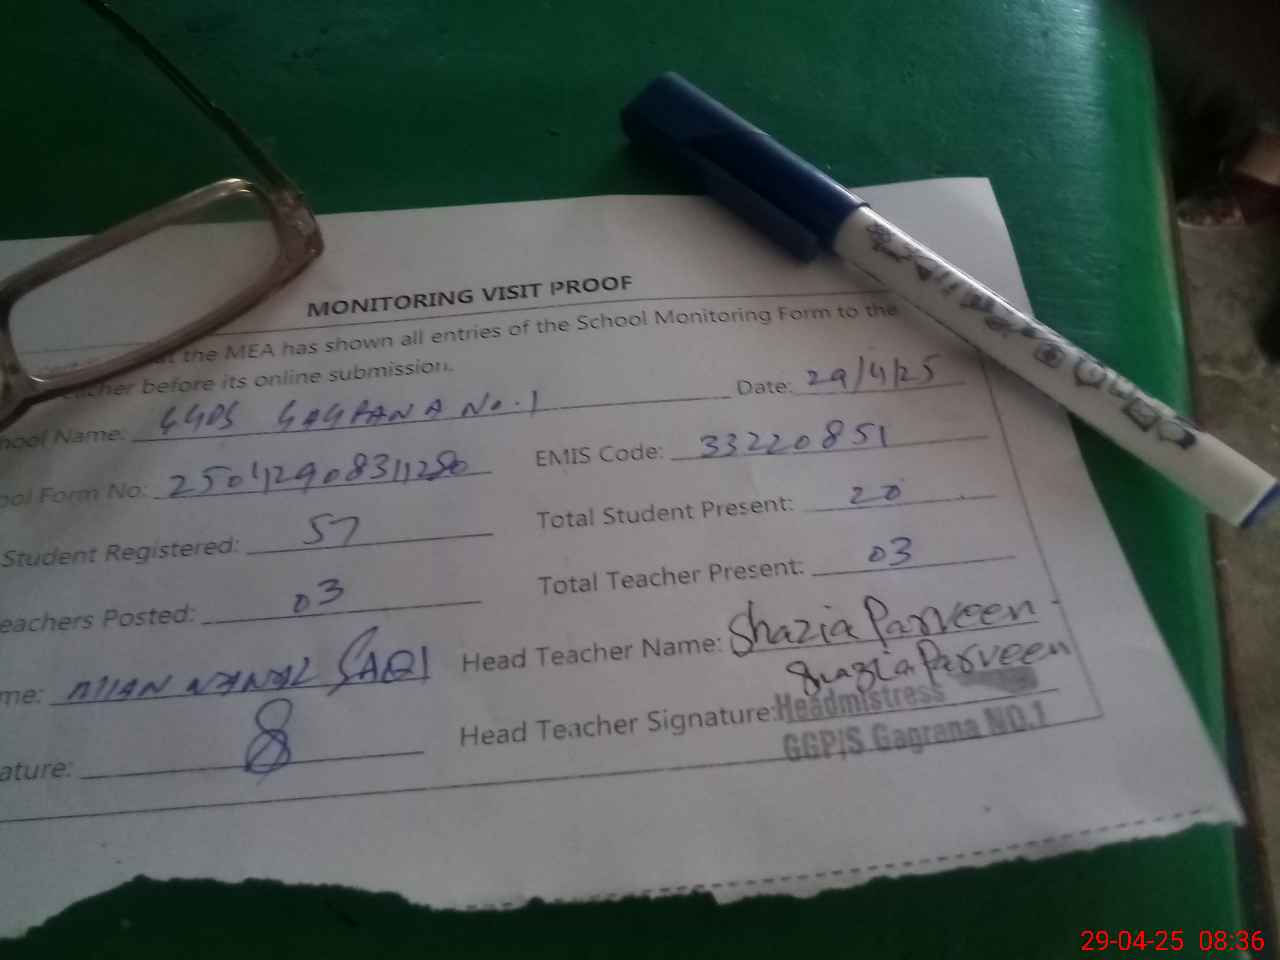 MONITORING VISIT PROOF
the MEA has shown all entries of the School Monitoring Form to the
before its online submission.
School Name: GGPS GAGRANA No.1 Date: 29/4/25
School Form No: 25042908311280 EMIS Code: 33220851
Student Registered: 57 Total Student Present: 20
Teachers Posted: 03 Total Teacher Present: 03
Head Teacher Name: Shazia Parveen
Shazia Parveen
Head Teacher Signature: Headmistress
GGP/S Gagrana NO.1
29-04-25 08:36